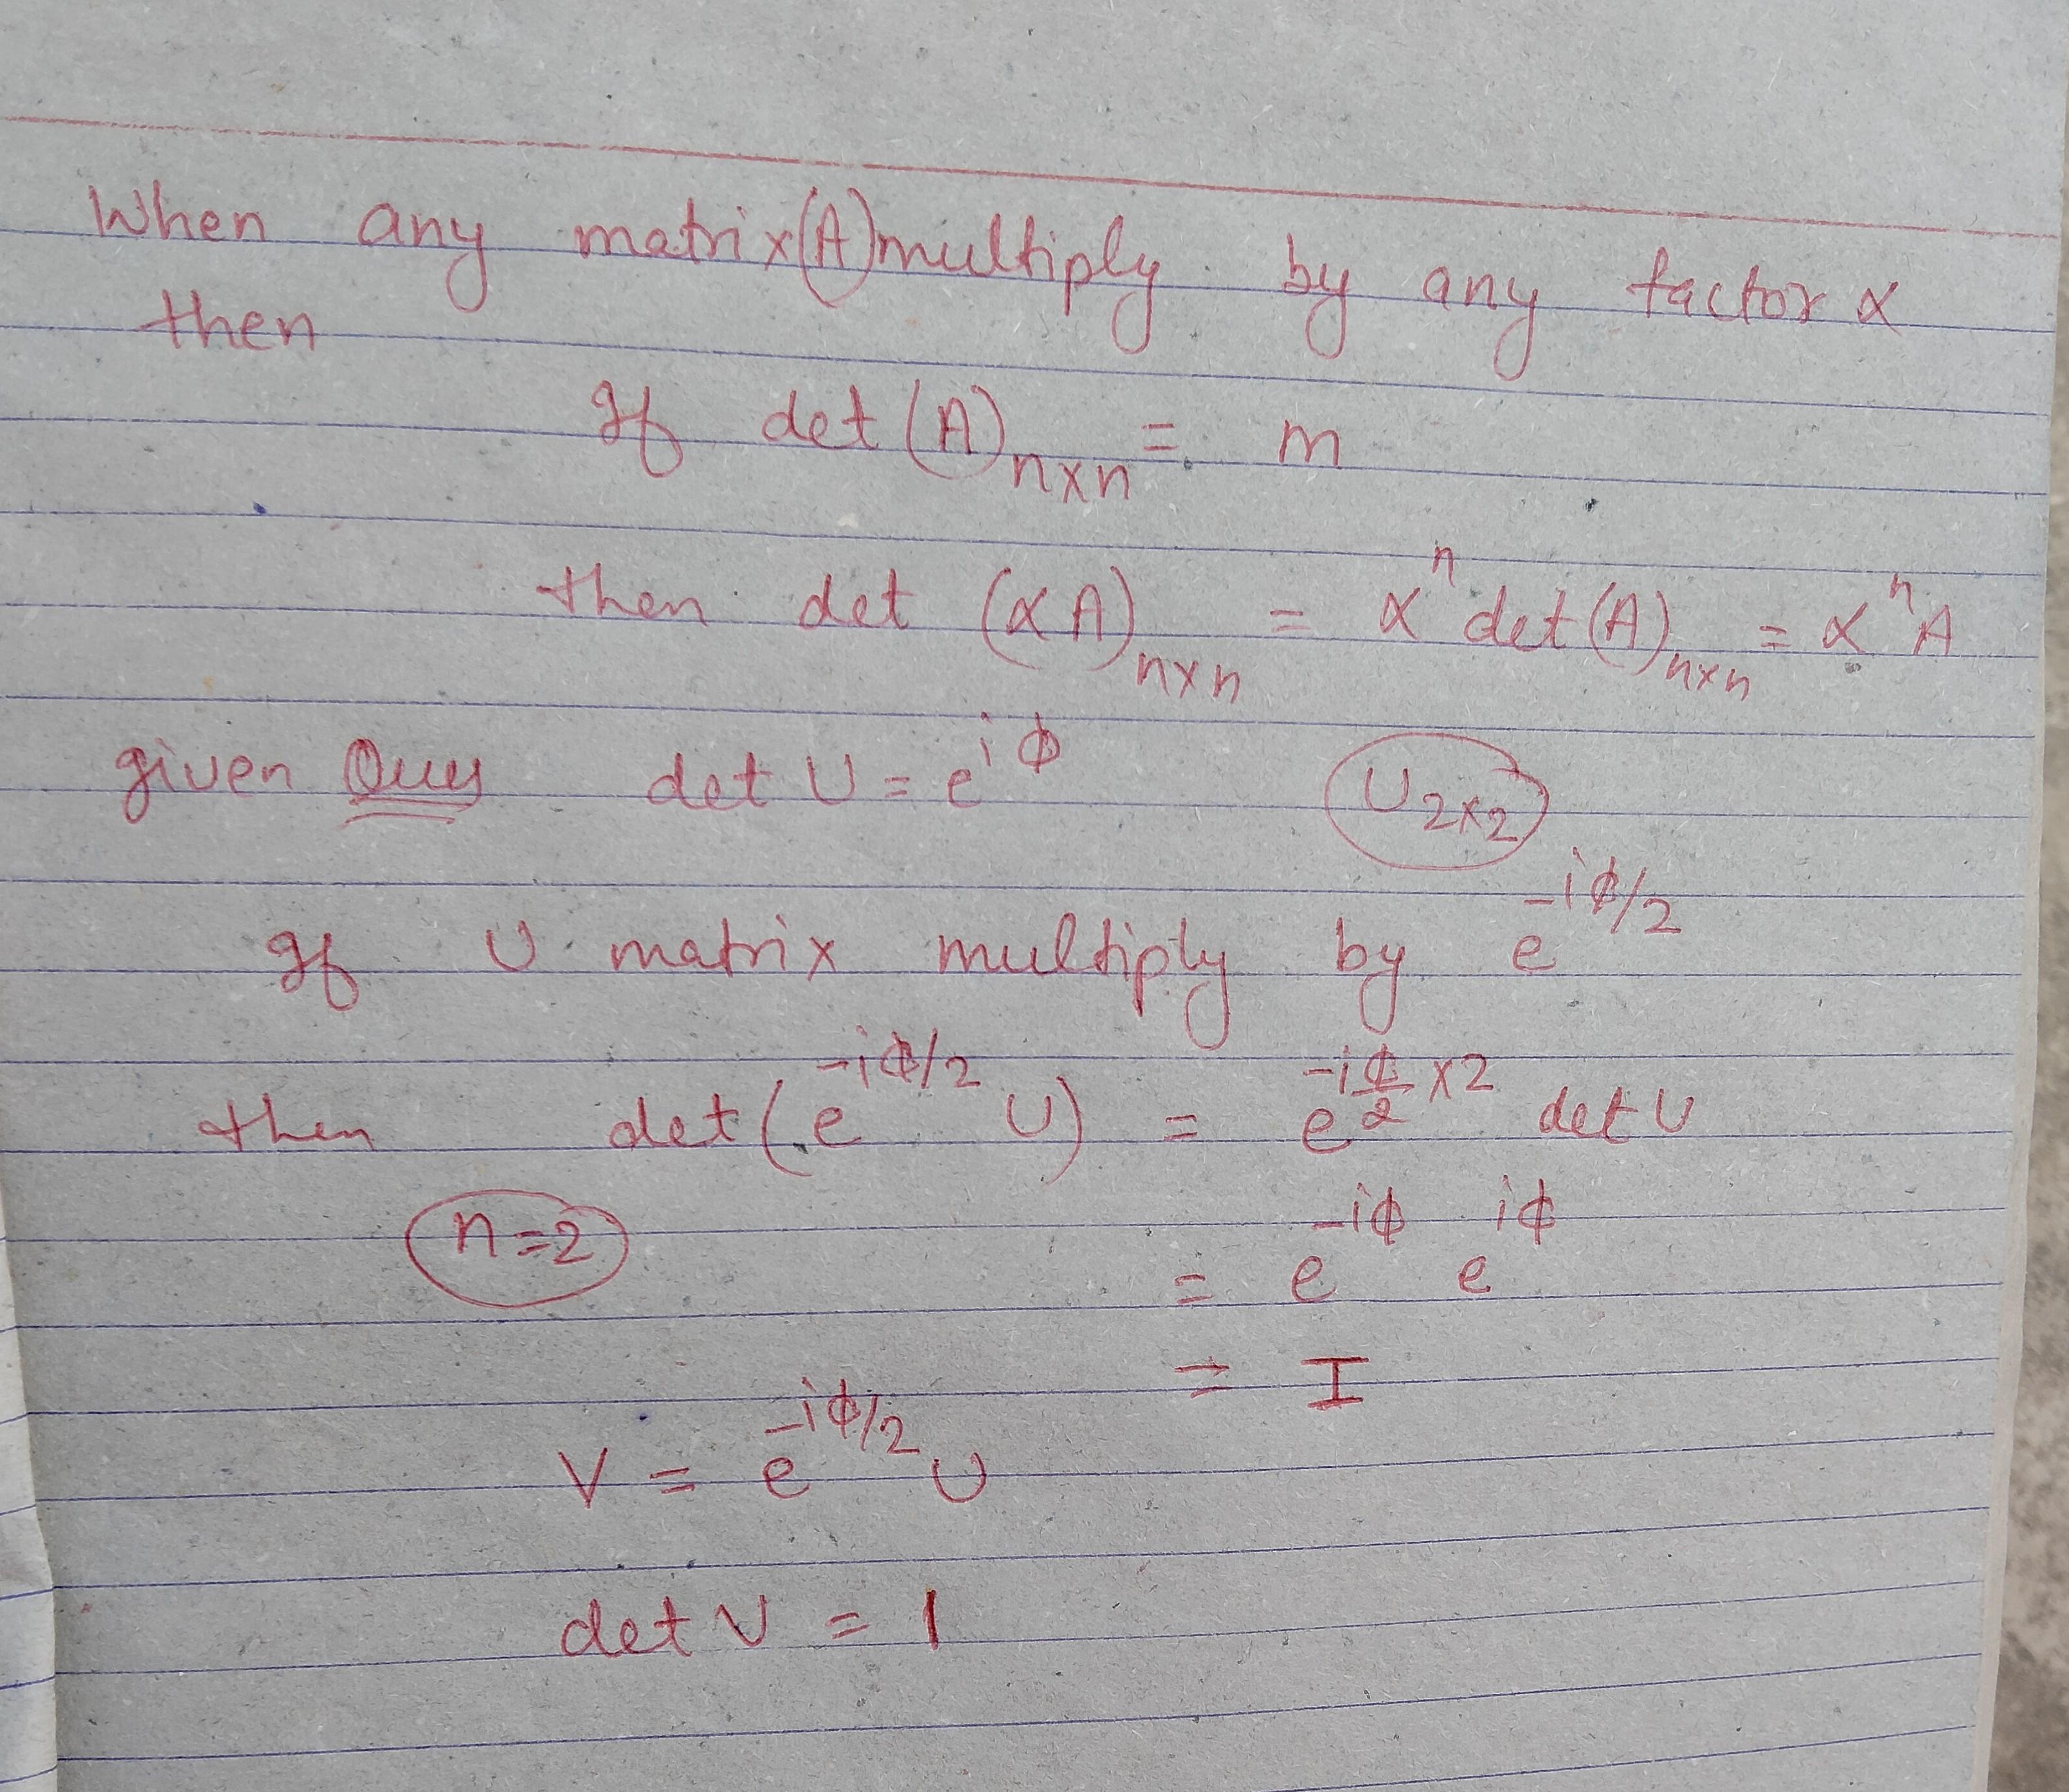 When any matrix(A) multiply by any factor α
then
If det (A)n×n = m
then det (αA)n×n = α^n det(A)n×n = α^n A
given Ques det U = e^iϕ U2×2
If U matrix multiply by e^-iϕ/2
then det (e^-iϕ/2 U) = e^-iϕ/2 ×2 det U
n=2 = e^-iϕ e^iϕ
= I
V = e^-iϕ/2 U
det V = 1